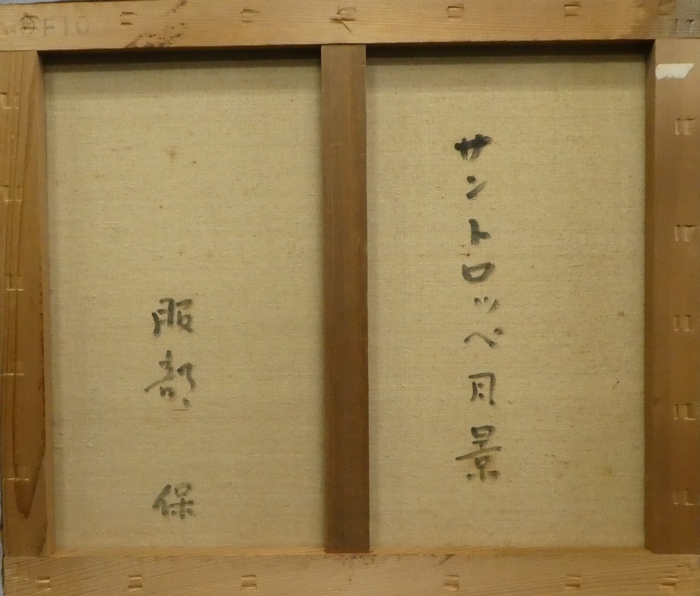 サントロッペ月景
服部 保
F10